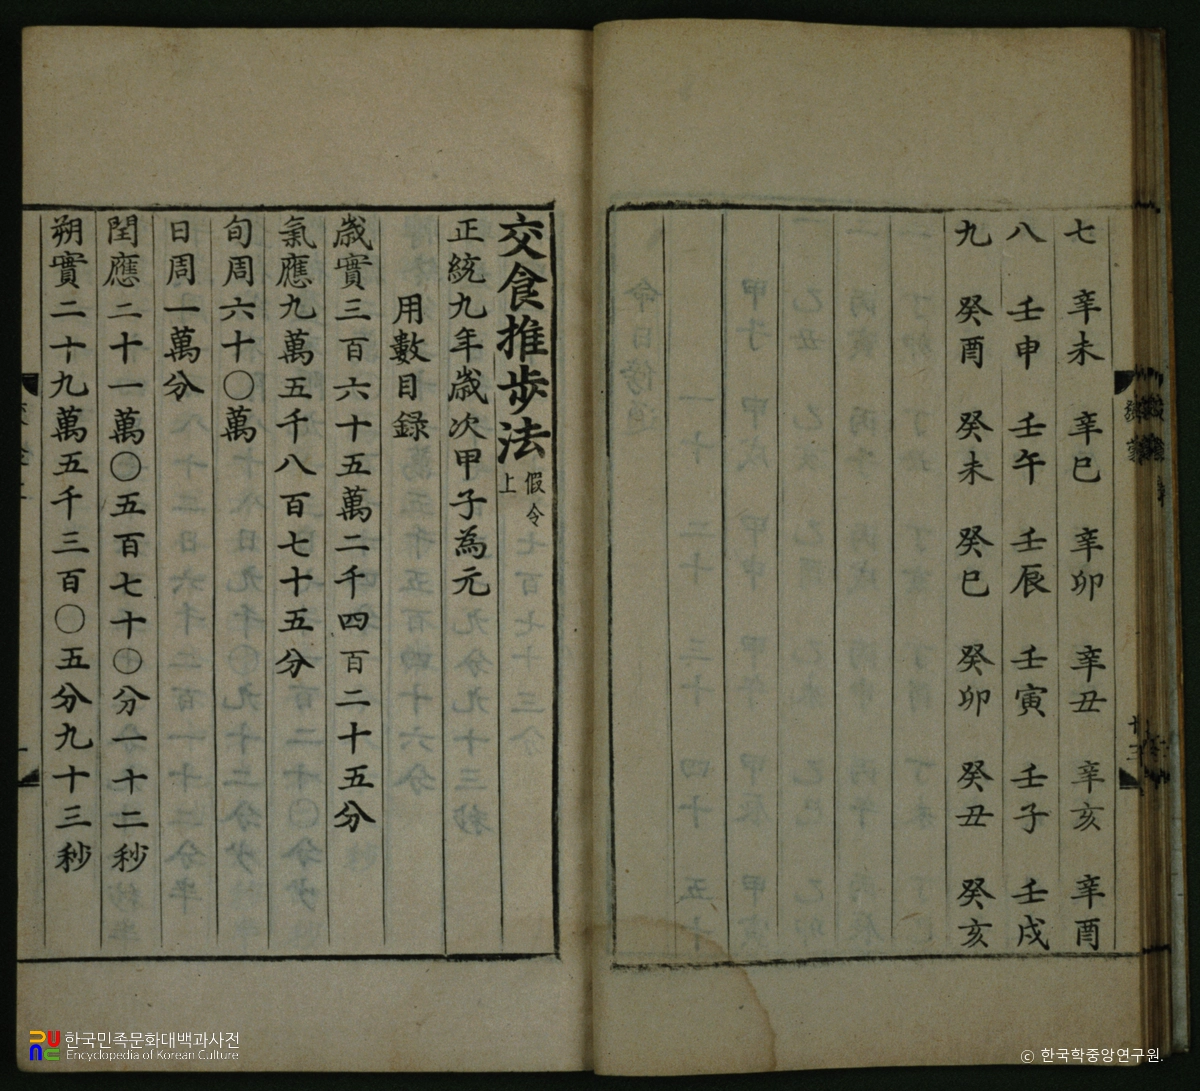 七 辛未 辛巳 辛卯 辛丑 辛亥 辛酉
八 壬申 壬午 壬辰 壬寅 壬子 壬戌
九 癸酉 癸未 癸巳 癸卯 癸丑 癸亥
交食推步法
假令
上
正統九年歲次甲子為元
用數目錄
歲實三百六十五萬二千四百二十五分
氣應九萬五千八百七十五分
旬周六十〇萬
日周一萬分
閏應二十一萬〇五百七十〇分一十二秒
朔實二十九萬五千三百〇五分九十三秒
한국민족문화대백과사전
Encyclopedia of Korean Culture
© 한국학중앙연구원.